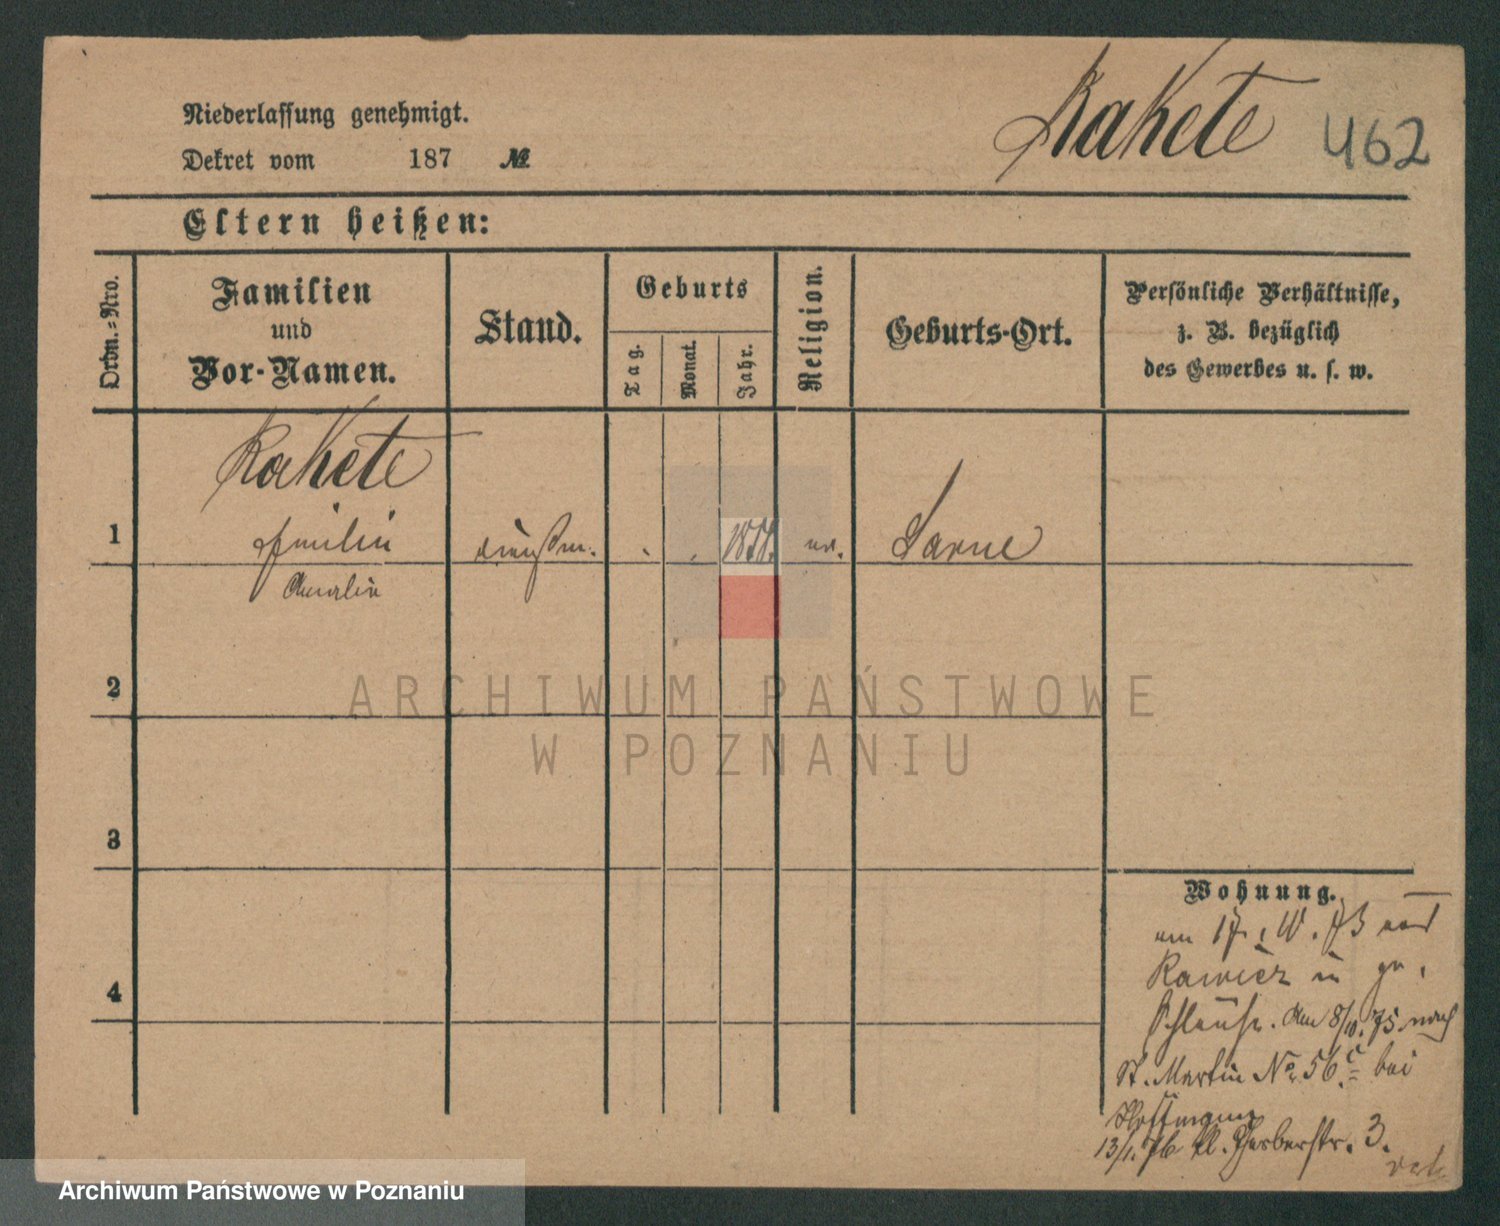 Niederlassung genehmigt.
Rakete 462
Dekret vom 187 №
Eltern heißen:
Ordn.=Nro.
Familien
und
Vor-Namen.
Stand.
Geburts
Tag.
Monat.
Jahr.
Religion.
Geburts-Ort.
Persönliche Verhältnisse,
z. B. bezüglich
des Gewerbes u. s. w.
Rakete
1 Emilie ev. Sarne
Amalie
2
ARCHIWUM PAŃSTWOWE
W POZNANIU
3
Wohnung.
am 17. 73
Rawicz
4
8/10. 75 nach
St. Martin No. 56 c bei
Hoffmann
13/1. 76 kl. Gerberstr. 3.
Archiwum Państwowe w Poznaniu